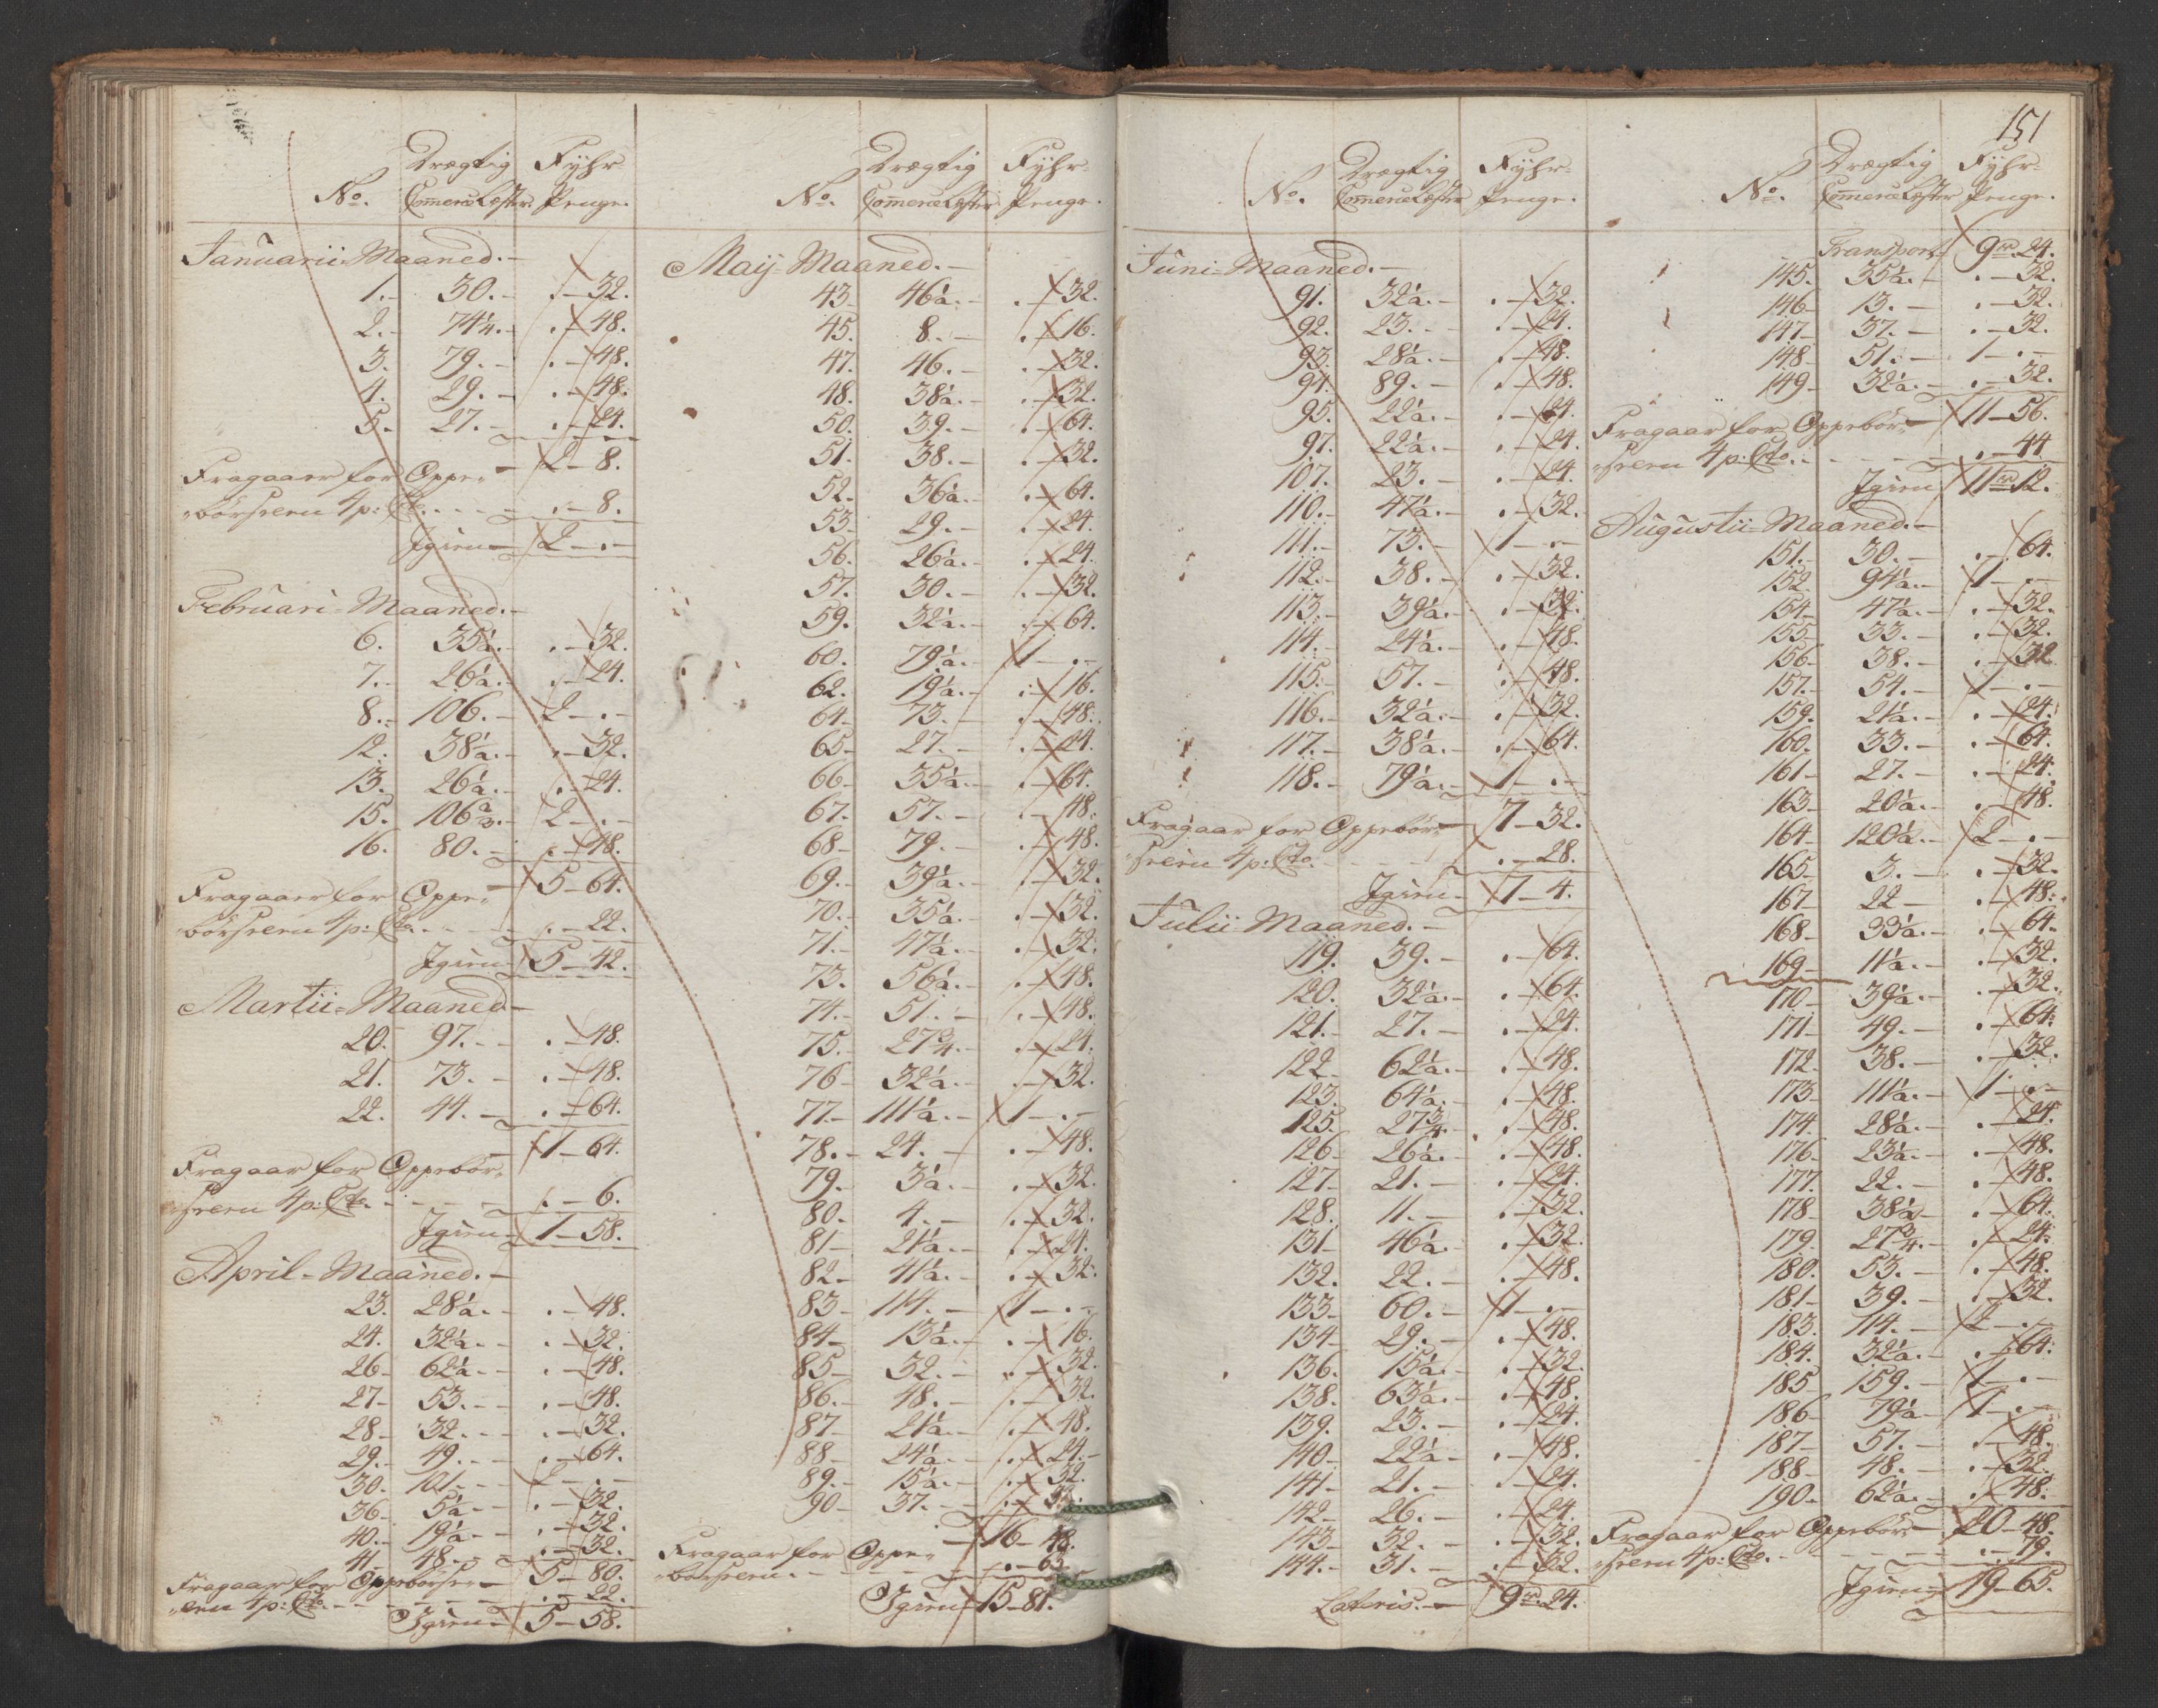 Drægtig Fyhr-
No. Commerce Læster Penge.
Januarii Maaned.
1. 30. . 32.
2. 74 1/4. . 48.
3. 79. . 48.
4. 29. . 48.
5. 27. . 24.
2 - 8.
Fragaaer for Oppe-
børselen 4 p: Cto. . 8.
Igien 2 - .
Februari Maaned.
6. 35 1/2. . 32.
7. 26 1/2. . 24.
8. 106. 2 - .
12. 38 1/2. . 32.
13. 26 1/2. . 24.
15. 106 2/3. 2 - .
16. 80. . 48.
5 - 64.
Fragaaer for Oppe-
børselen 4 p: Cto. . 22.
Igien 5 - 42.
Martii Maaned
20. 97. . 48.
21. 73. . 48.
22. 44. . 64.
1 - 64.
Fragaar for Oppebør-
selen 4 p: Cto. . 6.
Igien 1 - 58.
April Maaned.
23. 28 1/2. . 48.
24. 32 1/2. . 32.
26. 62 1/2. . 48.
27. 53. . 48.
28. 32. . 32.
29. 49. . 64.
30. 101.
36. 5 1/2. . 32.
40. 19 1/2. . 32.
41. 48. . 32.
5 - 80.
Fragaar for Oppebørsel-
en 4 p: Cto. . 22.
Igien 5 - 58.
Drægtig Fyhr-
No. Commerce Læster Penge.
Maij Maaned.
43 46 1/2. . 32.
45. 8. . 16.
47. 46. . 32.
48. 38 1/2. . 32.
50. 39. . 64.
51. 38. . 32.
52. 36 1/2. . 64.
53 29. . 24.
56. 26 1/2. . 24.
57. 30. . 32.
59. 32 1/2. . 64.
60. 79 1/2. 1 - .
62. 19 1/2. . 16.
64 73. . 48.
65 27. . 24.
66 35 1/2. . 64.
67. 57. . 48.
68 79. . 48.
69. 39 1/2. . 32.
70. 35 1/2. . 32.
71. 47 1/2. . 32.
73. 56 1/2. . 48.
74. 51. . 48.
75. 27 3/4. . 24.
76 32 1/2. . 32.
77. 111 1/2. 1 - .
78. 24. . 48.
79. 3 1/2. . 32.
80. 4. . 32.
81 21 1/2. . 24.
82 41 1/2. . 32.
83 114. 1 - .
84 13 1/2. . 16.
85 32. . 32.
86. 48. . 32.
87 21 1/2. . 48.
88 24 1/2. . 24.
89. 15 1/2. . 32.
90 37. . 32.
16 - 48.
Fragaar for Oppe-
børselen. . 63
Igien 15 - 81.
151
Drægtig Fyhr-
No. Commerce Læster Penge.
Juni Maaned.
91. 32 1/2. . 32.
92. 23. . 24.
93. 28 1/2. . 48.
94. 89. . 48.
95. 22 1/2. . 24.
97. 22 1/2. . 24.
107. 23. . 24.
110. 47 1/2. . 32.
111. 73. 1 - .
112. 38. . 32.
113. 39 1/2. . 32.
114. 24 1/2. . 48.
115. 57. . 48.
116. 32 1/2. . 32.
117. 38 1/2. . 64.
118. 79 1/2. 1 - .
7 - 32.
Fragaar for Oppebør-
selen 4 p: Cto. . 28.
Igien 7 - 4.
Julii Maaned.
119. 39. . 64.
120. 32 1/2. . 64.
121. 27. . 24.
122 62 1/2. . 48.
123. 64 1/2. . 48.
125. 27 3/4. . 48.
126 26 1/2. . 48.
127 21. . 24.
128. 11. . 32.
131 46 1/2. . 32.
132. 22. . 48.
133 60. 1 - .
134 29. . 48.
136. 15 1/2. . 32.
138. 63 1/2. . 48.
139. 23. . 24.
140 22 1/2. . 48.
141 21. . 24.
142 26. . 24.
143 32. . 32.
144. 31. . 32.
Lateris. 9 rd 24.
Drægtig Fyhr-
No. Commerce Læster Penge.
Transport 9 rd 24.
145. 35 1/2. . 32.
146 13. . 32.
147 37. . 32.
148 51. 1 - .
149 32 1/2. . 32.
11 - 56.
Fragaar for Oppebør-
selen 4 p: Cto. . 44
Igien 11 rd 12.
Augustii Maaned.
151. 30. . 64.
152 94 1/2. 1 - .
154 47 1/2. . 32.
155 33. . 32.
156 38. . 32
157. 54. 1 - .
159. 21 1/2. . 24.
160. 33. . 64.
161 27. . 24.
163 20 1/2. . 48.
164 120 1/2. 2 - .
165 3. . 32.
167 22 . 48.
168 33 1/2. . 64.
169 11 1/2. . 32.
170 39 1/2. . 32.
171 49. . 64.
172. 38. . 32.
173 111 1/2. 1 - .
174 28 1/2. . 24.
176 23 1/2. . 48.
177. 22. . 48.
178 38 1/2 . 64.
179 27 3/4. . 24.
180. 53. . 48.
181 39. . 32.
183 114.
184. 32 1/2. . 64.
185 159.
186 79 1/2 1 - .
187 57. . 48.
188 48. . 32.
190 62 1/2. . 48.
20 - 48.
Fragaar for Oppebør-
selen 4 p: Cto. . 79.
Igien 19 - 65.